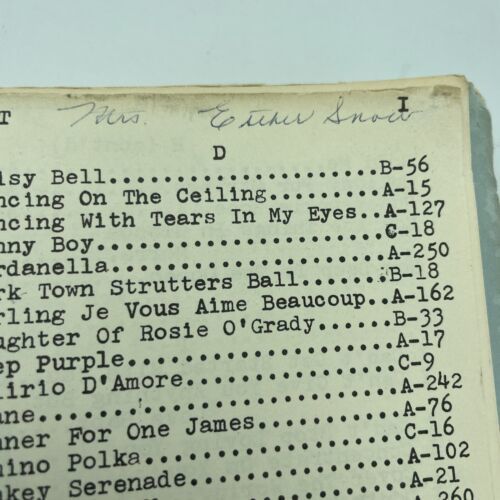 T Mrs. Esther Snow I
D
isy Bell....................B-56
ncing On The Ceiling.........A-15
ncing With Tears In My Eyes..A-127
nny Boy......................C-18
rdanella.....................A-250
rk Town Strutters Ball.......B-18
rling Je Vous Aime Beaucoup..A-162
ughter Of Rosie O'Grady......B-33
ep Purple....................A-17
lirio D'Amore................C-9
ane..........................A-242
nner For One James...........A-76
mino Polka...................C-16
nkey Serenade................A-102
A-21
A-260